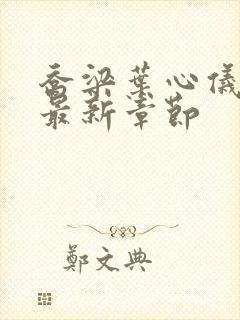 乔梁叶心仪
最新章节
鄭文典